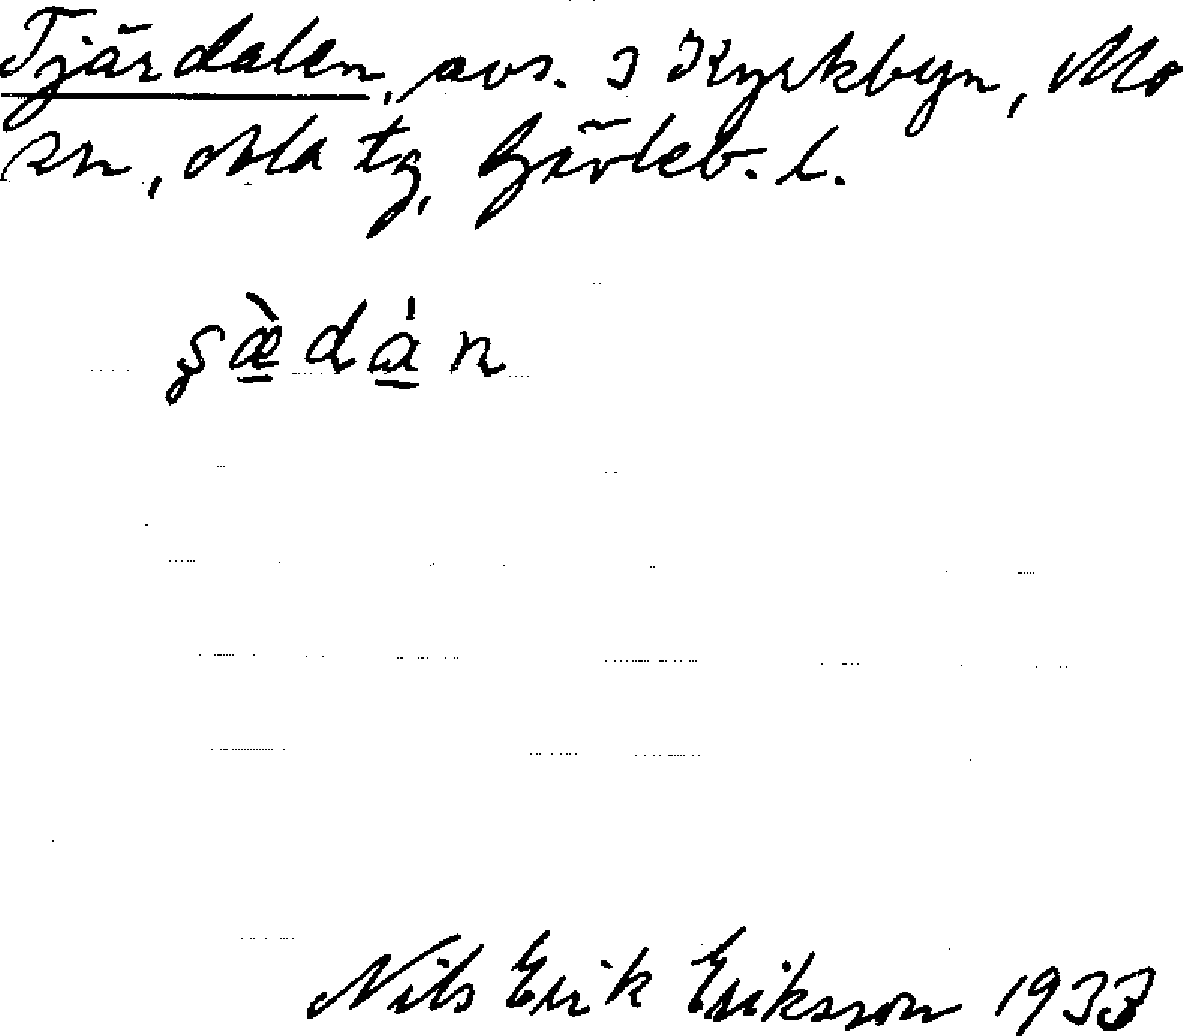 Tjärdalen, avs. i Kyrkbyn, Mo
sn, Ala tg, Gävleb. l.
şæ̀dàn
Nils Erik Eriksson 1933